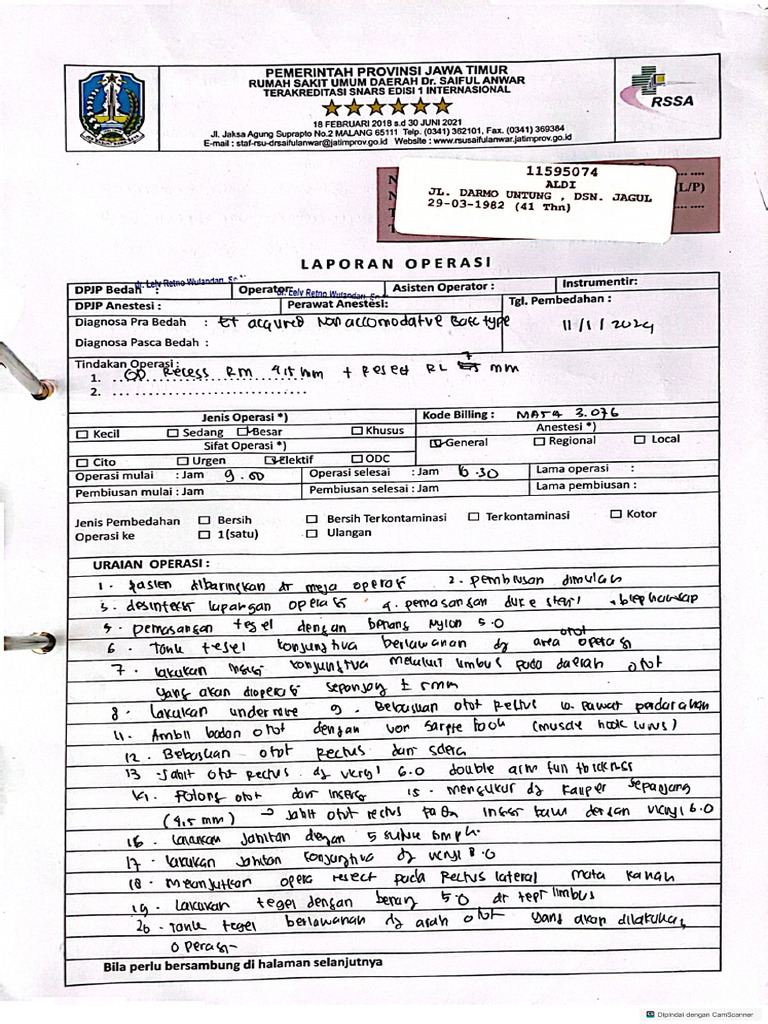 PEMERINTAH PROVINSI JAWA TIMUR
RUMAH SAKIT UMUM DAERAH Dr. SAIFUL ANWAR
TERAKREDITASI SNARS EDISI 1 INTERNASIONAL
18 FEBRUARI 2018 s.d 30 JUNI 2021
Jl. Jaksa Agung Suprapto No.2 MALANG 65111 Telp. (0341) 362101, Fax. (0341) 369384
E-mail : staf-rsu-drsaifulanwar@jatimprov.go.id Website : www.rsusaifulanwar.jatimprov.go.id
RSSA
11595074
ALDI
JL. DARMO UNTUNG , DSN. JAGUL
29-03-1982 (41 Thn)
(L/P)
LAPORAN OPERASI
DPJP Bedah : dr. Lely Retno Wulandari, Operator: dr. Lely Retno Wulandari, Asisten Operator : Instrumentir:
DPJP Anestesi : Perawat Anestesi: Tgl. Pembedahan :
Diagnosa Pra Bedah : ET acqured Non accomodative Basc type 11/1/2024
Diagnosa Pasca Bedah :
Tindakan Operasi :
1. OD Recess RM 4,5 mm + Resect RL 7 mm
2.
Jenis Operasi *) Kode Billing : MATA 3.076
Kecil Sedang Besar Khusus Anestesi *)
Sifat Operasi *) General Regional Local
Cito Urgen Elektif ODC
Operasi mulai : Jam 9.00 Operasi selesai : Jam Lama operasi :
Pembiusan mulai : Jam Pembiusan selesai : Jam Lama pembiusan :
Jenis Pembedahan Bersih Bersih Terkontaminasi Terkontaminasi Kotor
Operasi ke 1(satu) Ulangan
URAIAN OPERASI :
1. Pasien dibaringkan di meja operasi 2. pembiusan dimulai
3. desinfeksi lapangan operasi 4. pemasangan duk steril
5. pemasangan tegel dengan benang Nylon 5.0
6. Tarik tegel konjungtiva berlawanan dg area otot operasi
7. lakukan insisi konjungtiva melalui limbus pada daerah otot
yang akan dioperasi sepanjang ±
8. lakukan undermine 9. Bebaskan otot Rectus 10. Rawat perdarahan
11. Ambil badan otot dengan hook (muscle hook
12. Bebaskan otot Rectus dari sclera
13. Jahit otot rectus dg vicryl 6.0 double arm full thickness
14. Potong otot dari insersi 15. mengukur dg kaliper sepanjang
(4,5 mm) → jahit otot rectus pada insersi baru dengan vicryl 6.0
16. jahitan dengan 5
17. lakukan jahitan konjungtiva dg vicryl 8.0
18. Melanjutkan operasi resect pada Rectus lateral mata kanan
19. Lakukan tegel dengan benang 5.0 di tepi limbus
20. Tarik tegel berlawanan dg arah otot yang akan dilakukan
operasi
Bila perlu bersambung di halaman selanjutnya
Dipindai dengan CamScanner